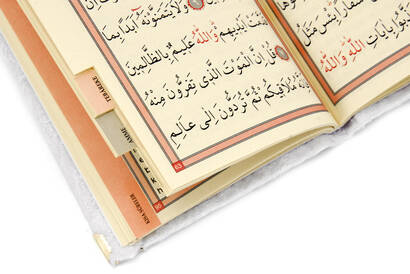 بِئْسَ مَثَلُ
بِاٰيَاتِ اللّٰهِ وَاللّٰهُ
وَلَا يَتَمَنَّوْنَهُٓ اَبَدًا بِمَا
اَيْدِيهِمْ وَاللّٰهُ عَلِيمٌ بِالظَّالِمِينَ
قُلْ اِنَّ الْمَوْتَ الَّذِي تَفِرُّونَ مِنْهُ
مُلَاقِيكُمْ ثُمَّ تُرَدُّونَ اِلٰى عَالِمِ
63
TEBAREKE
AMME
KISA SURELER